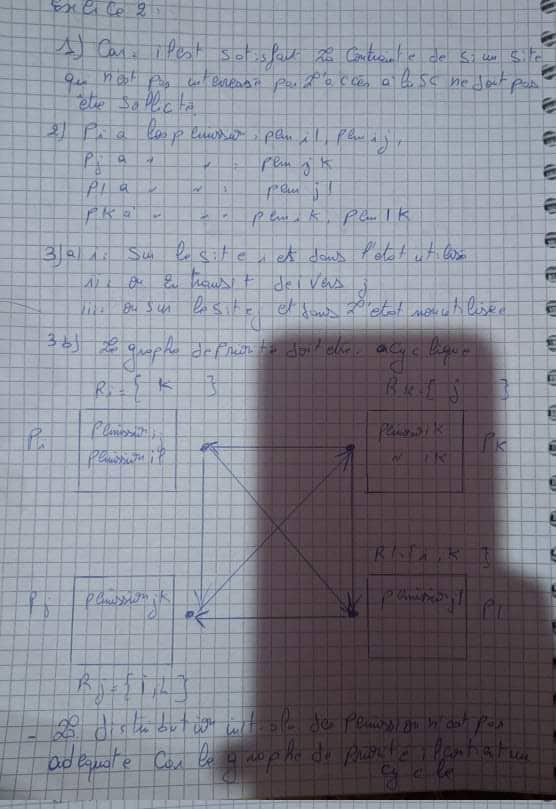 Exercice 2:
1) Car il est satisfait la contrainte de si un site
qui n'est pas interessé par l'accès à la SC ne doit pas
être sollicité
2) Pi a les permission: perm il, perm ij,
Pj a " " : perm jk
Pl a " " : perm jl
PK a " " perm ik, perm lk
3)a) i: Sur le site i et dans l'état utilisé
ii: ou en transit de i vers j
iii: ou sur le site j et dans l'état non utilisée
3b) Le graphe de priorité doit être acyclique
Ri={ k } Rk={ j }
Pi permission ij permission ik PK
permission il " ik
Rl={i, k }
Pj permission jk permission jl Pl
Rj={i, L}
- La distribution initiale des permission n'est pas
adequate Car le graphe de priorité contient un
cycle